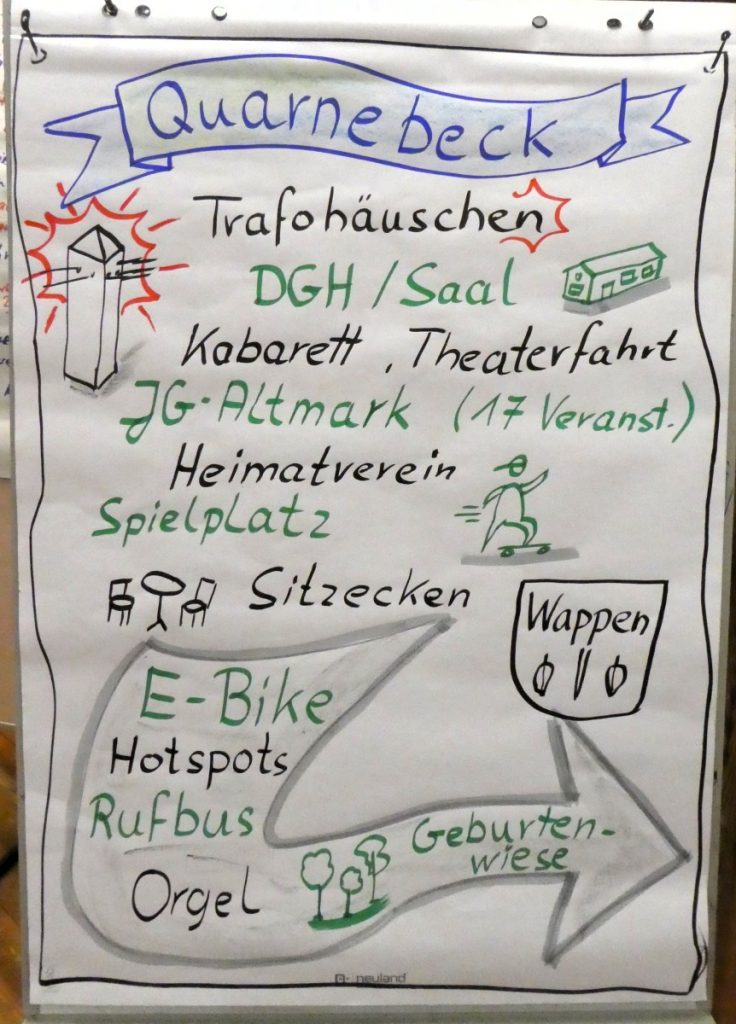 Quarnebeck
Trafohäuschen
DGH / Saal
Kabarett, Theaterfahrt
JG-Altmark (17 Veranst.)
Heimatverein
Spielplatz
Sitzecken
Wappen
E-Bike
Hotspots
Rufbus
Geburten-
wiese
Orgel
neuland